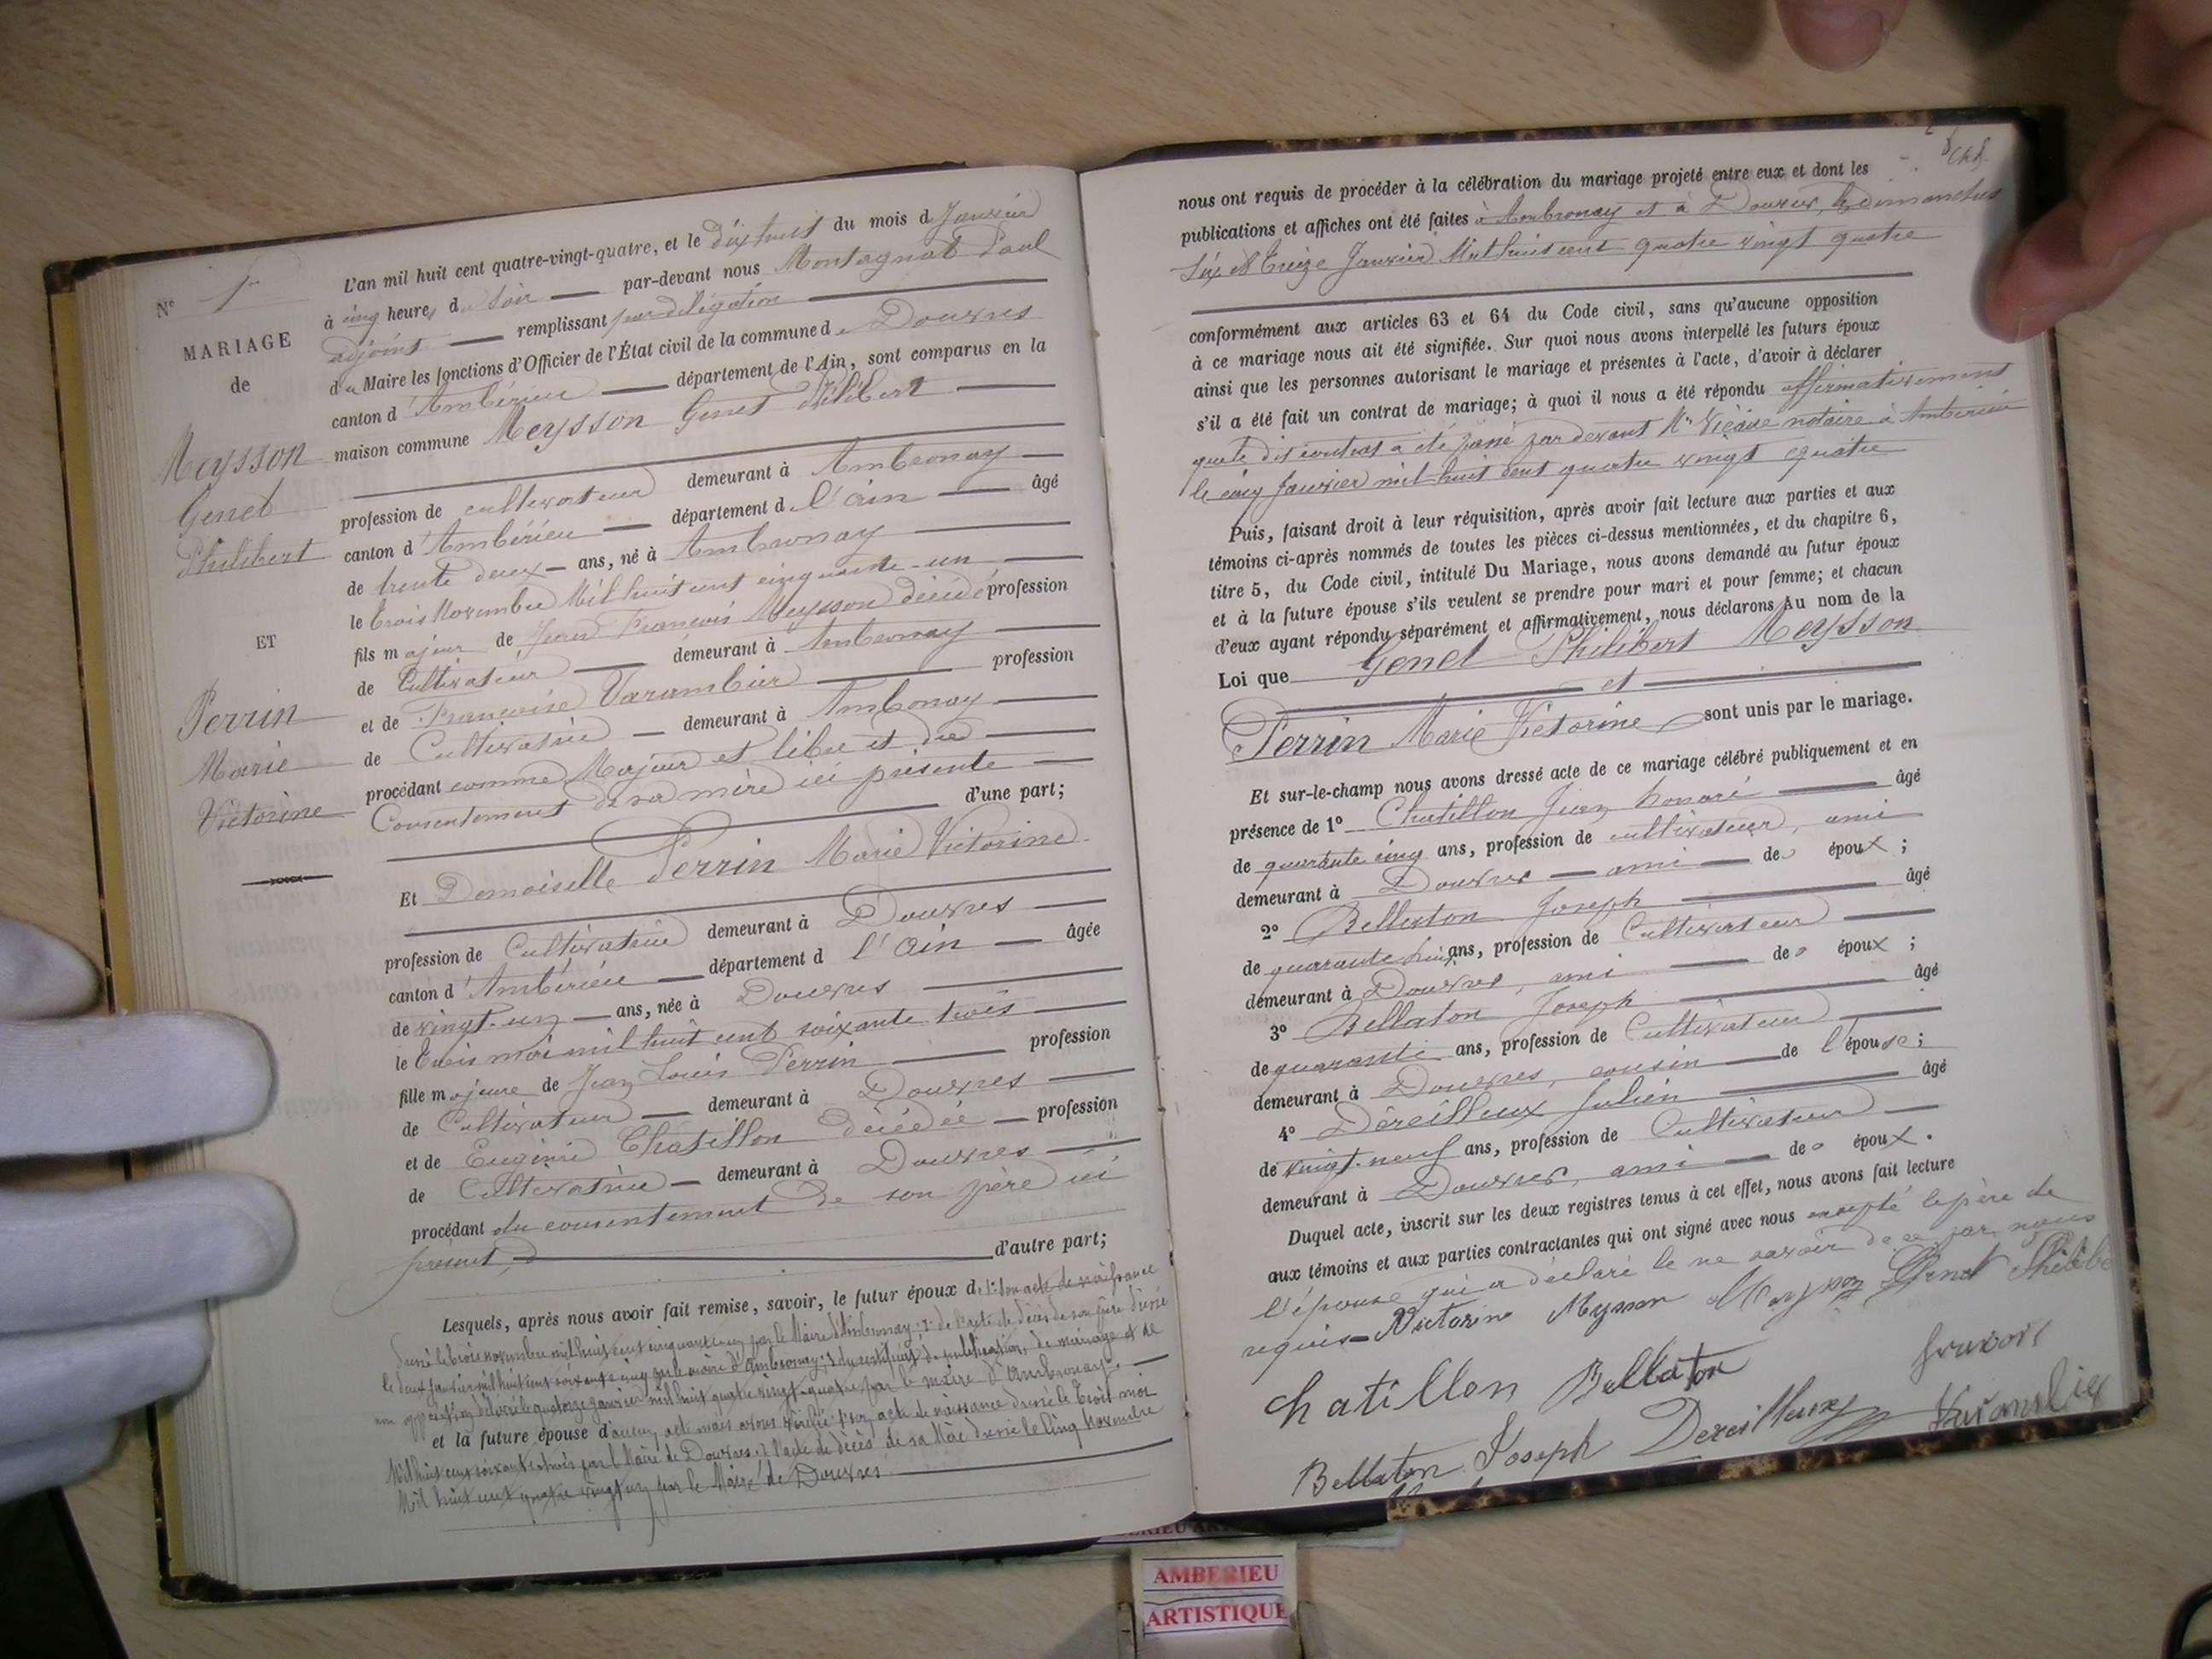 N° 1er
MARIAGE
de
Meysson
Genet
Philibert
ET
Perrin
Marie
Victorine
L'an mil huit cent quatre-vingt-quatre, et le dix huit du mois d Janvier
à cinq heures du soir par-devant nous Montagnat Paul
adjoint remplissant par délégation
du Maire les fonctions d'Officier de l'État civil de la commune de Douvres
canton d'Ambérieu département de l'Ain, sont comparus en la
maison commune Meysson Genet Philibert
profession de cultivateur demeurant à Ambronay
canton d'Ambérieu département de l'Ain âgé
de trente deux ans, né à Ambronay
le trois Novembre Mil huit cent cinquante-un
fils majeur de Jean François Meysson décédé profession
de Cultivateur demeurant à Ambronay
et de Françoise Varambier profession
de Cultivatrice demeurant à Ambonay
procédant comme Majeur et libre et du
Consentement de sa mère ici présente
d'une part;
Et Demoiselle Perrin Marie Victorine
profession de Cultivatrice demeurant à Douvres
canton d'Ambérieu département d l'Ain âgée
de vingt-un ans, née à Douvres
le trois mai mil huit cent soixante trois
fille majeure de Jean Louis Perrin profession
de Cultivateur demeurant à Douvres
et de Eugénie Chatillon décédée profession
de Cultivatrice demeurant à Douvres
procédant du consentement de son père ici
présent, d'autre part;
Lesquels, après nous avoir fait remise, savoir, le futur époux de 1° son acte de naissance
dressé le trois novembre mil huit cent cinquante un par le Maire d'Ambronay; 2° de l'acte de décès de son père dressé
le deux Janvier mil huit cent soixante cinq par le maire d'Ambronay; 3° du certificat de publication de mariage et de
non opposition délivré le quatorze janvier mil huit quatre vingt-quatre par le maire d'Ambronay.
et la future épouse d'aucun acte mais avons vérifié 1° son acte de naissance dressé le trois mai
Mil huit cent soixante trois par le Maire de Douvres; 2° l'acte de décès de sa Mère dressé le Cinq Novembre
Mil huit cent quatre vingt un par le Maire de Douvres.
nous ont requis de procéder à la célébration du mariage projeté entre eux et dont les
publications et affiches ont été faites à Ambronay et à Douvres, les dimanches
Six et Treize Janvier Mil huit cent quatre vingt quatre
conformément aux articles 63 et 64 du Code civil, sans qu'aucune opposition
à ce mariage nous ait été signifiée. Sur quoi nous avons interpellé les futurs époux
ainsi que les personnes autorisant le mariage et présentes à l'acte, d'avoir à déclarer
s'il a été fait un contrat de mariage; à quoi il nous a été répondu affirmativement
que le dit contrat a été passé par devant Me notaire à Ambérieu
le cinq Janvier mil huit cent quatre vingt quatre
Puis, faisant droit à leur réquisition, après avoir fait lecture aux parties et aux
témoins ci-après nommés de toutes les pièces ci-dessus mentionnées, et du chapitre 6,
titre 5, du Code civil, intitulé Du Mariage, nous avons demandé au futur époux
et à la future épouse s'ils veulent se prendre pour mari et pour femme; et chacun
d'eux ayant répondu séparément et affirmativement, nous déclarons Au nom de la
Loi que Genet Philibert Meysson
et
Perrin Marie Victorine sont unis par le mariage.
Et sur-le-champ nous avons dressé acte de ce mariage célébré publiquement et en
présence de 1° Chatillon Jean honoré âgé
de quarante cinq ans, profession de cultivateur, ami
demeurant à Douvres ami des époux;
2° Bellaton Joseph âgé
de quarante huit ans, profession de Cultivateur
demeurant à Douvres, ami des époux;
3° Bellaton Joseph âgé
de quarante ans, profession de Cultivateur
demeurant à Douvres, cousin de l'épouse;
4° Déreilleux Julien âgé
de vingt-neuf ans, profession de Cultivateur
demeurant à Douvres, ami des époux.
Duquel acte, inscrit sur les deux registres tenus à cet effet, nous avons fait lecture
aux témoins et aux parties contractantes qui ont signé avec nous excepté le père de
l'épouse qui a déclaré le ne savoir de ce par nous
requis Victorine Mysson Meysson Genet Philibe
Chatillon Bellaton
Bellaton Joseph Dereilleux
AMBERIEU
ARTISTIQUE